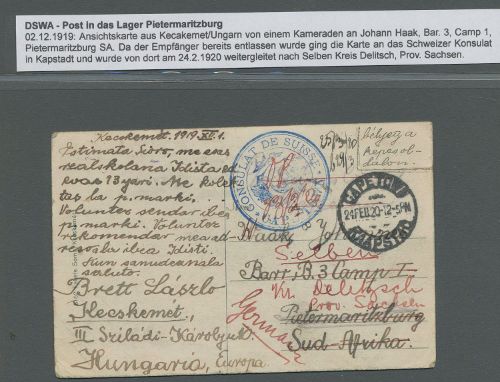 DSWA - Post in das Lager Pietermaritzburg
02.12.1919: Ansichtskarte aus Kecakemet/Ungarn von einem Kameraden an Johann Haak, Bar. 3, Camp 1,
Pietermaritzburg SA. Da der Empfänger bereits entlassen wurde ging die Karte an das Schweizer Konsulat
in Kapstadt und wurde von dort am 24.2.1920 weitergleitet nach Selben Kreis Delitsch, Prov. Sachsen.
Kecskemét. 1919 XII. 1.
Estimata Sioro, me esas
realskolana
evas 13 yari. Me kolek-
tas la p. marki.
Volunter sendar
p. marki. Volunter
rekomendar
la
Kun samideanala
saluto.
Brett László
Kecskemét,
III Sziládi-Károly u.
Hungaria, Europa.
CONSULAT DE SUISSE
bélyeg a
képesol-
dalon.
CAPETOWN
24 FEB 20-12-5PM
KAAPSTAD
Haak,
Selben
Barr. B. 3 Camp I.
Kr. Delitzsch
Prov. Sachsen
Pietermaritzburg
Sud Afrika.
Germany